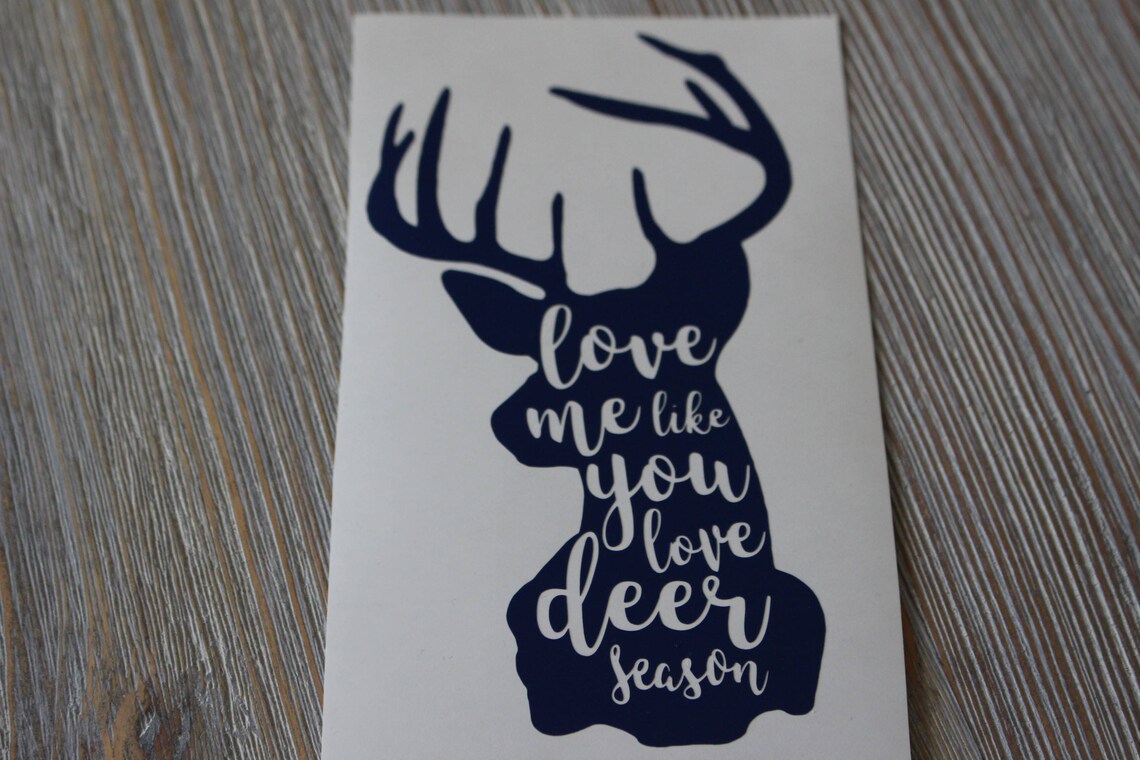 love
me like
you
love
deer
season